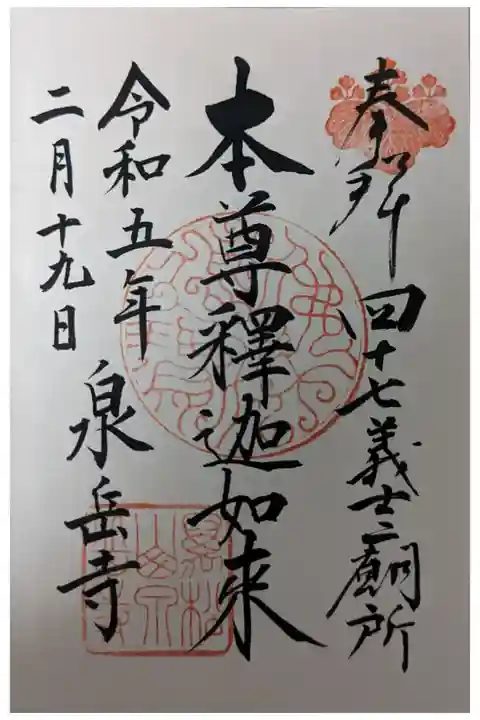 奉拜 四十七義士廟所
本尊釋迦如來
令和五年
二月十九日
泉岳寺